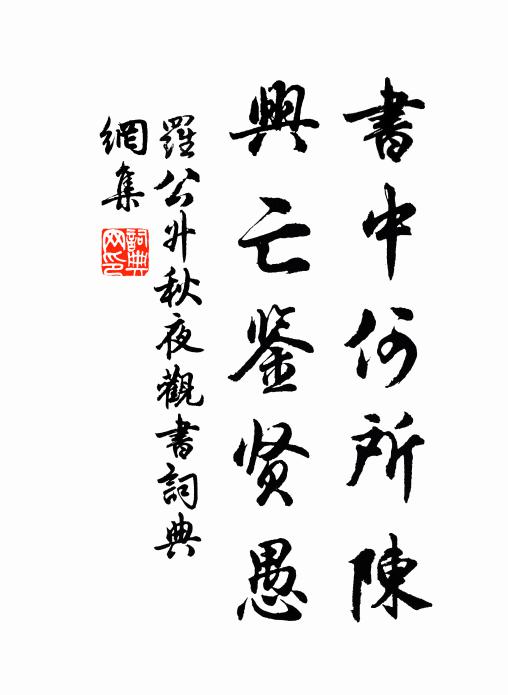 書中何所陳
興亡鉴贤愚
羅公升秋夜觀書詞典
網集
詞典
网印